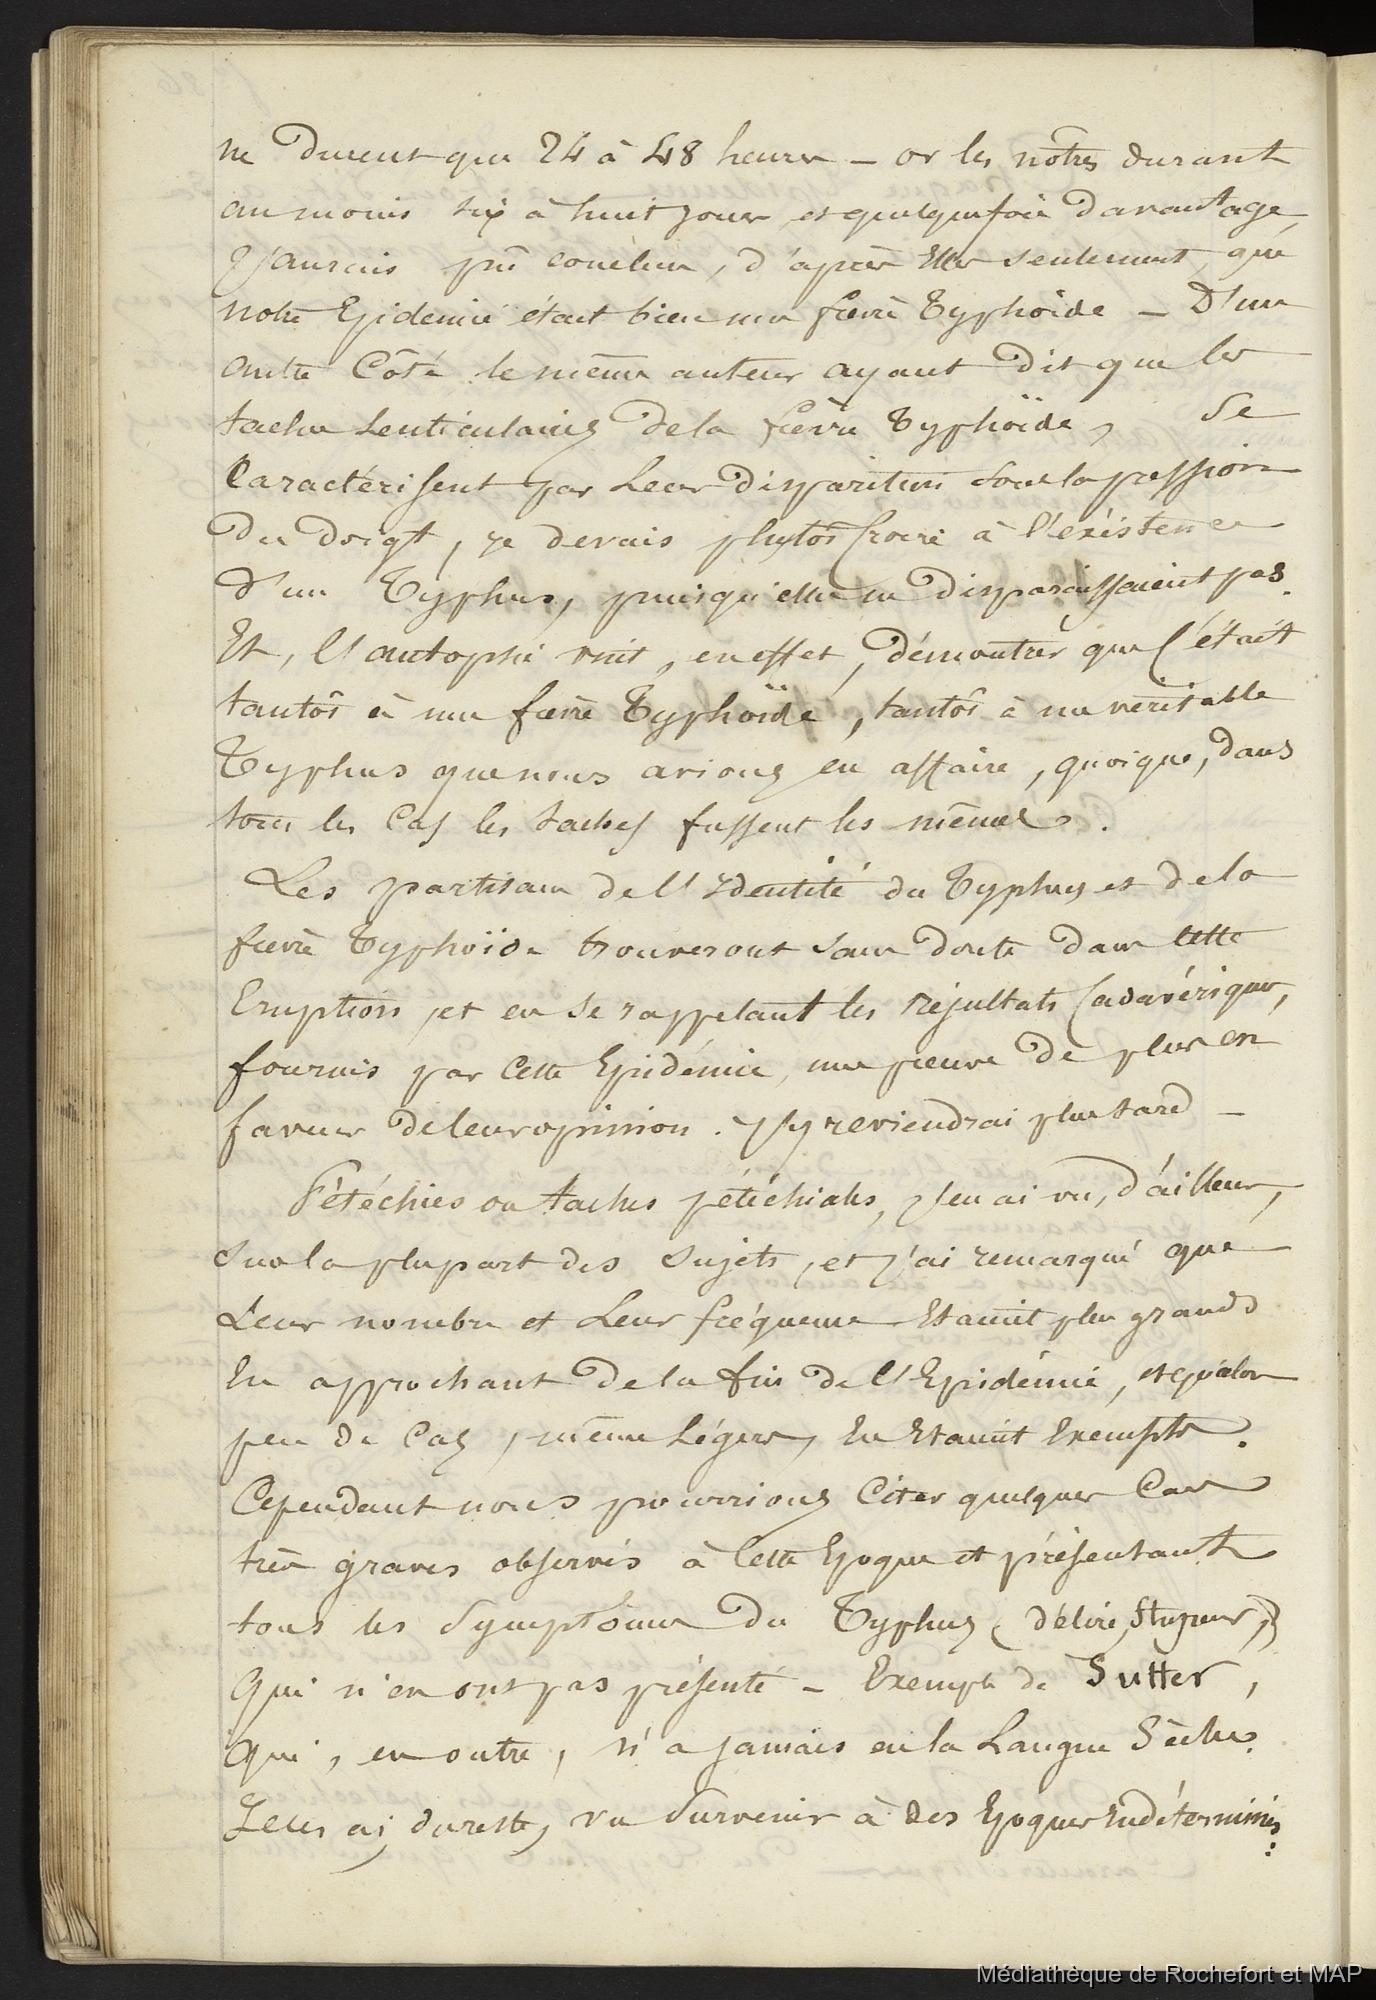 ne durent que 24 à 48 heures – or les nôtres durant
au moins six à huit jours, et quelquefois davantage,
j'aurais pû conclure, d'après Elles seulement, que
notre Epidemie était bien une fièvre Typhoïde – D'un
autre Côté le même auteur ayant Dit que les
taches lenticulaires de la fièvre Typhoïde, se
Caractérisent par Leur Disparition sous la pression
Du Doigt, je devais plutôt Croire à l'existence
d'un Typhus, puisqu'elles ne Disparaissaient pas.
Et, l'autopsie vint, en effet, démontrer que C'était
tantôt à une fièvre Typhoïde, tantôt à un veritable
Typhus que nous avions eu affaire, quoique, dans
tous les Cas les taches fussent les mêmes.
Les partisans de l'Identité du Typhus et de la
fièvre Typhoïde trouveront sans doute dans cette
Eruption, et en se rappelant les résultats Cadavériques,
fournis par Cette Epidémie, une preuve de plus en
faveur de leur opinion. J'y reviendrai plus tard –
Pétéchies ou taches pétéchiales, j'en ai vu, d'ailleurs,
sur la plupart des sujets, et j'ai remarqué que
Leur nombre et Leur fréquence Etaient plus grands
En approchant de la fin de l'Epidémie, et qu'alors
peu de Cas, même Légers, En Etaient Exempts.
Cependant nous pourrions Citer quelques Cas
très graves observés à Cette Epoque et présentant
tous les Symptômes du Typhus (délire, Stupeur,)
Qui n'en ont pas présenté – Exemple de Sutter,
Qui, en outre, n'a jamais eu la Langue Sèche.
Je les ai, du reste, vu Survenir à des Epoques Indéterminées:
Médiathèque de Rochefort et MAP